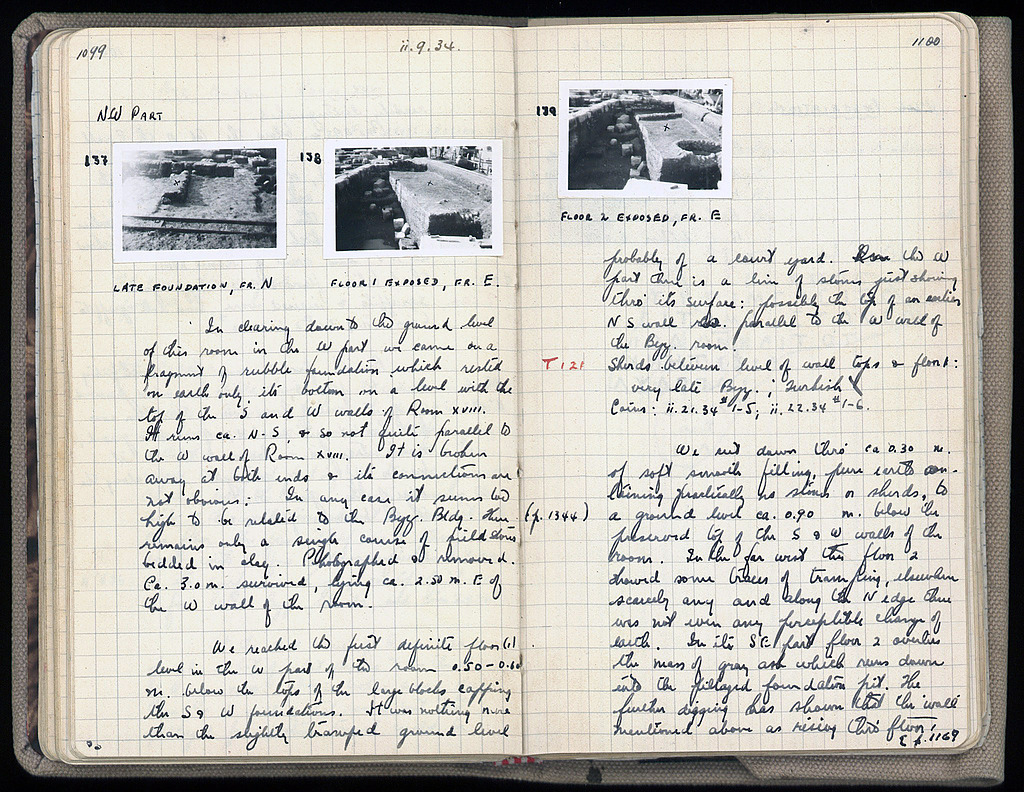 1099
ii.9.34.
NW PART
137
138
LATE FOUNDATION, FR. N
FLOOR 1 EXPOSED, FR. E.
In clearing down to the ground level
of this room in the W part we came on a
fragment of rubble foundation which rested
on earth only, its bottom on a level with the
top of the S and W walls of Room XVIII.
It runs ca. N-S, & so not quite parallel to
the W wall of Room XVIII. It is broken
away at both ends & its connections are
not obvious: In any case it seems too
high to be related to the Byz. Bldg. There
(p. 1344)
remains only a single course of field stones
bedded in clay. Photographed & removed.
Ca. 3.0 m. survived, lying ca. 2.50 m. E of
the W wall of the room.
We reached the first definite floor (1)
level in the W part of the room 0.50-0.60
m. below the tops of the large blocks capping
the S & W foundations. It was nothing more
than the slightly tramped ground level
1100
139
FLOOR 2 EXPOSED, FR. E
probably of a court yard. In the W
part there is a line of stones just showing
thro' its surface: possibly the top of an earlier
N S wall parallel to the W wall of
the Byz. room.
T 121
Sherds between level of wall tops & floor 1:
very late Byz.; Turkish
Coins: ii.21.34 #1-5; ii.22.34 #1-6.
We went down thro' ca 0.30 m.
of soft smooth filling, pure earth con-
taining practically no stones or sherds, to
a ground level ca. 0.90 m. below the
preserved top of the S & W walls of the
room. In the far west this floor 2
showed some traces of tramping, elsewhere
scarcely any and along the N edge there
was not even any perceptible change of
earth. In its SE part floor 2 overlies
the mass of gray ash which runs down
into the pillaged foundation pit. The
further digging has shown that the wall
mentioned above as rising thro' floor 1
p. 1169